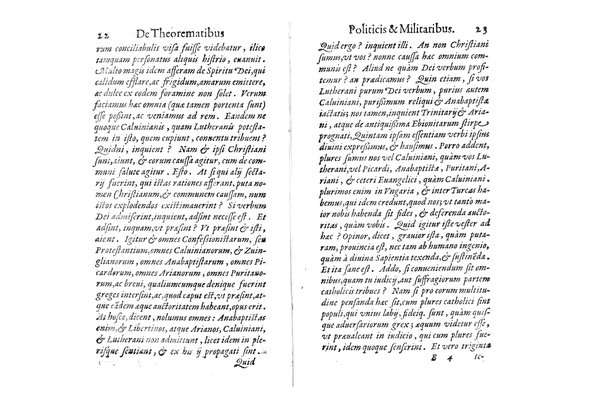 22 De Theorematibus
rum conciliabulis visa fuisse videbatur, ilico
tamquam personatus aliquis histrio, evanuit.
Multo magis idem asseram de Spiritu Dei, qui
calidum efflare, ac frigidum, amarum emittere,
ac dulce ex eodem foramine non solet. Verum
faciamus hæc omnia (quæ tamen portenta sunt)
esse possint, ac veniamus ad rem. Eandem ne
quoque Calvinianis, quam Lutheranis potesta-
tem in isto, quem cupiunt, conventu tribuent?
Quidni, inquient? Nam & ipsi Christiani
sunt, aiunt, & eorum caussa agitur, cum de com-
muni salute agitur. Esto. At si qui alij secta-
rij fuerint, qui istas rationes asserant, puta no-
men Christianum, & communem caussam, num
istos explodendos existimaverint? Si verbum
Dei admiserint, inquient, adsint necesse est. Et
adsint, inquam, vt præsint? Vt præsint & isti,
aient. Igitur & omnes Confessionistarum, seu
Protestantium, omnes Caluinianorum, & Zuin-
glianorum, omnes Anabaptistarum, omnes Pi-
cardorum, omnes Arianorum, omnes Puritano-
rum, ac breui, qualiumcumque denique fuerint
greges intersint, ac, quod caput est, vt præsint, at-
que eandem æque auctoritatem habeant, opus erit.
At hosce, dicent, nolumus omnes: Anabaptistas
enim, & Libertinos, atque Arianos, Caluiniani,
& Lutherani non admittunt, licet idem in ple-
risque sentiant, & ex hu ij propagati sint.
Quid
Politicis & Militaribus. 23
Quid ergo? inquient illi. An non Christiani
sumus, vt vos? nonne caussa hæc omnium com-
munis est? Aliud ne quàm Dei verbum profi-
temur? an prædicamus? Quin etiam, si vos
Lutherani purum Dei verbum, purius autem
Caluiniani, purissimum reliqui & Anabaptistæ
iactatis; nos tamen, inquient Trinitarij & Aria-
ni, atque de antiquissima Ebionitarum stirpe
prognati, Quintam ipsam essentiam verbi ipsius
diuini expressimus, & hausimus. Porro addent,
plures sumus nos vel Caluiniani, quàm vos Lu-
therani, vel Picardi, Anabaptistæ, Puritani, A-
riani, & ceteri Euangelici, quàm Caluiniani
plurimos enim in Vngaria, & inter Turcas ha-
bemus, qui idem credunt, quod nos; vt tantò ma-
ior nobis habenda sit fides, & deferenda aucto-
ritas, quàm vobis. Quid igitur iste vester ad
hæc? Opinor, dicet, grauior ista, quàm puta-
ram, prouincia est, nec tam ab humano ingenio,
quàm à diuina Sapientia texenda, & sustinẽda.
Et ita sane est. Addo, si conueniendum sit om-
nibus, quam tu iudicij, aut suffragiorum partem
catholicis tribues? Nam si pro eorum multitu-
dine pensanda hæc sit, cum plures catholici sint
populi, qui vnius labij, fideiq. sunt, quàm quis-
que aduersariorum grex; æquum videtur esse,
vt præualeant in iudicio, qui cum plures fue-
rint, idem quoque senserint. Et vero triginta
B 4 ic-